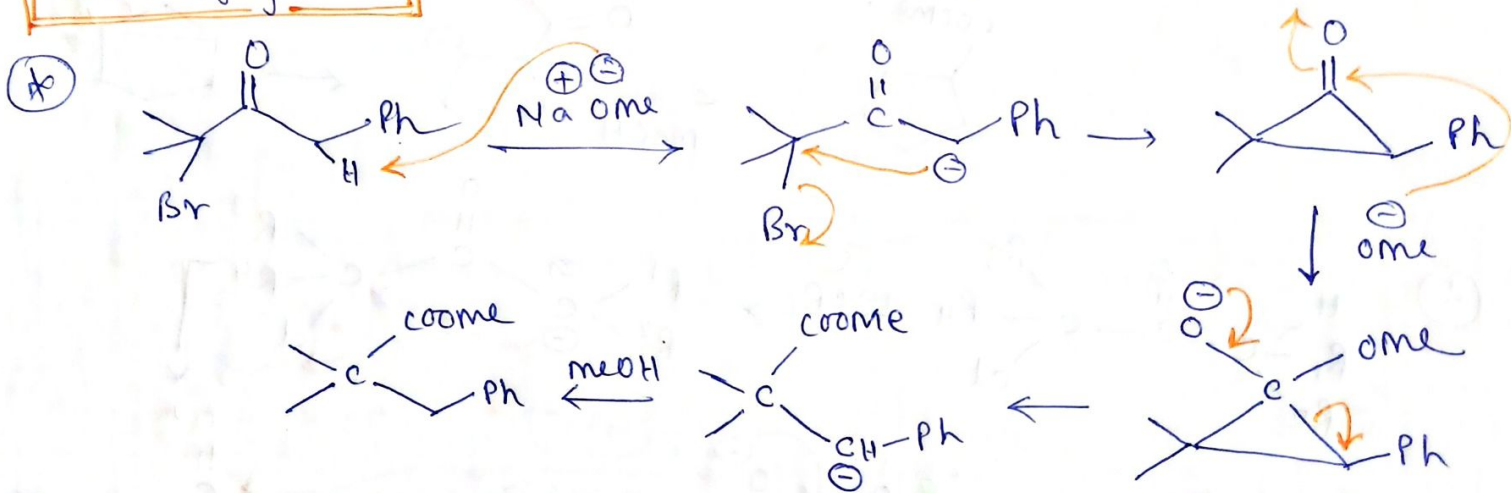 O
Ph
H
Br
⊕ ⊖
Na OMe
O
C
Ph
⊖
Br
O
Ph
⊖
OMe
⊖
O
OMe
C
Ph
COOMe
C
CH-Ph
⊖
MeOH
COOMe
C
Ph